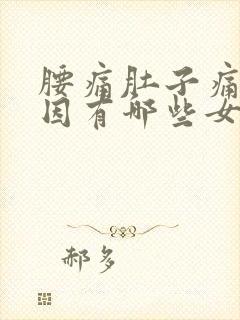 腰痛肚子痛
因有哪些女
郝多